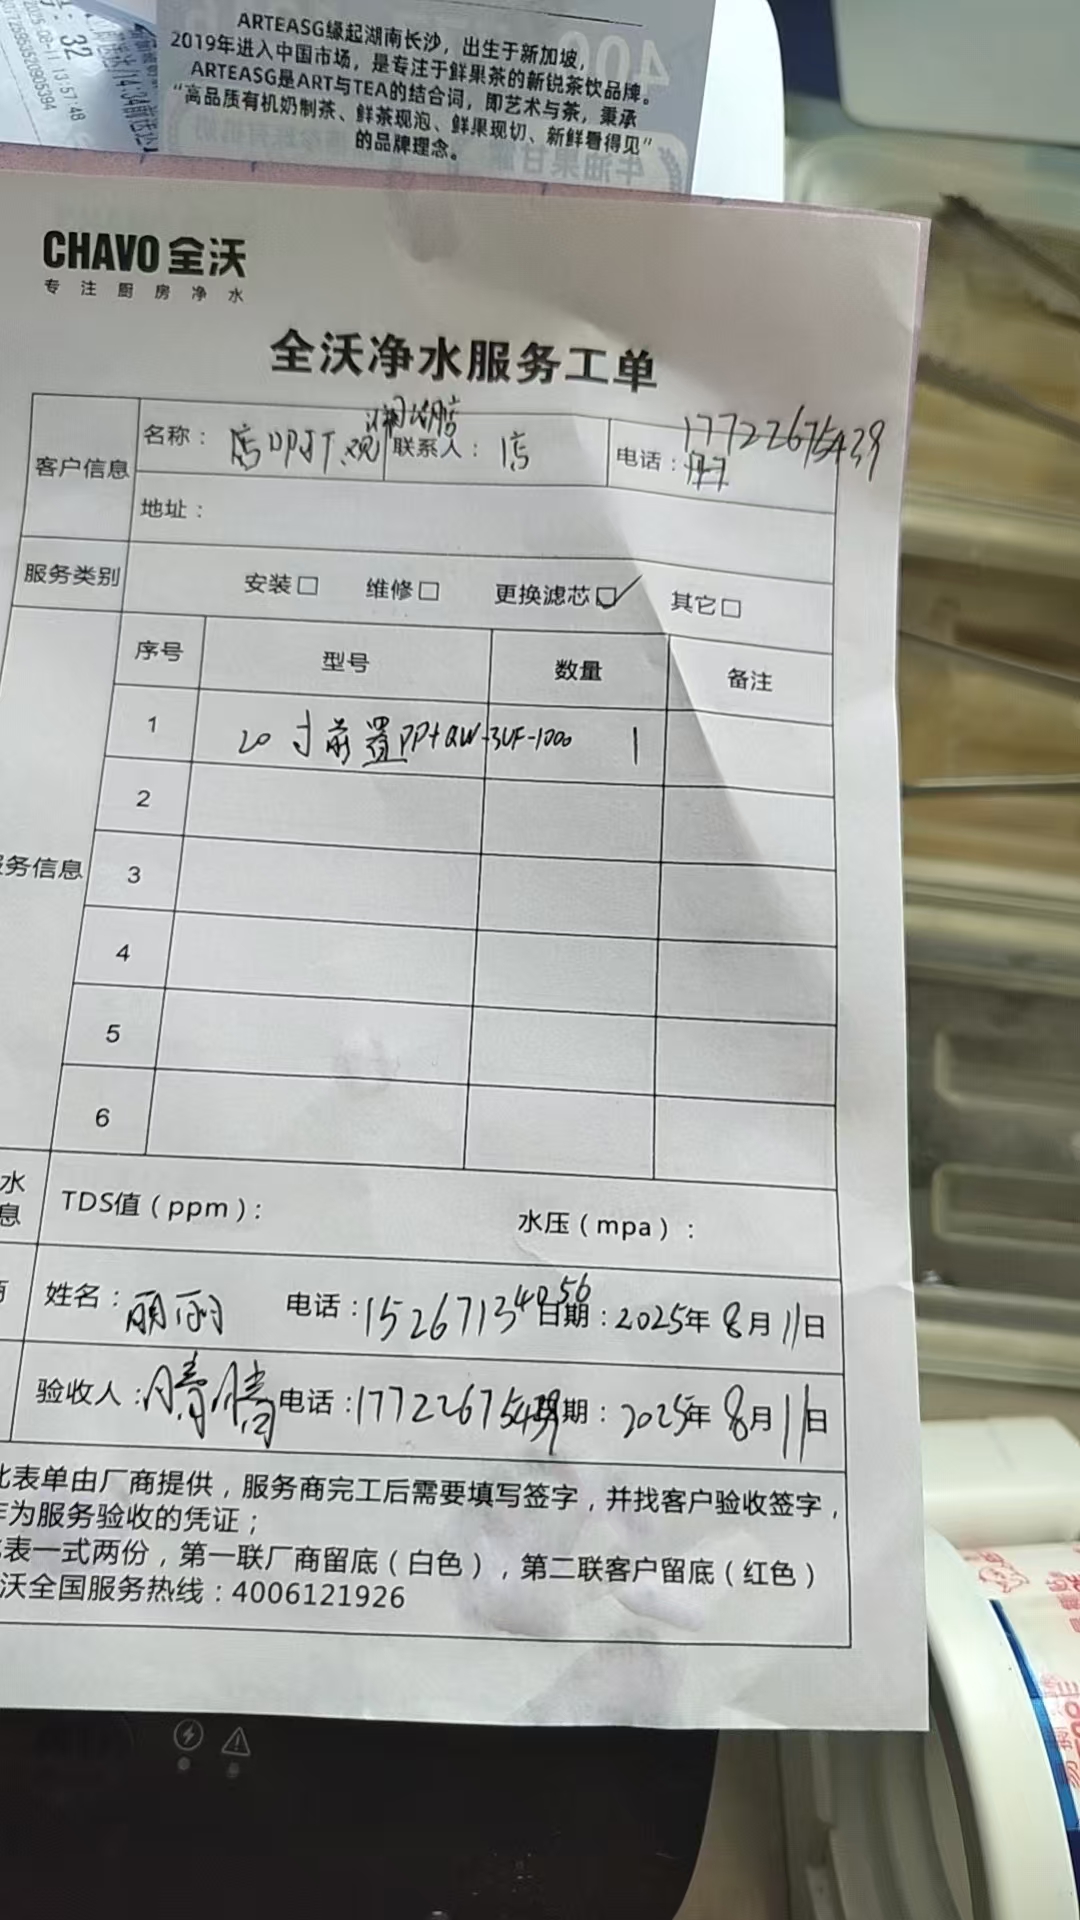 32
2025-08-11 13:57:48
ARTEASG缘起湖南长沙，出生于新加坡，
2019年进入中国市场，是专注于鲜果茶的新锐茶饮品牌。
ARTEASG是ART与TEA的结合词，即艺术与茶，秉承
“高品质有机奶制茶、鲜茶现泡、鲜果现切、新鲜看得见”
的品牌理念。
CHAVO 全沃
专注厨房净水
全沃净水服务工单
客户信息 名称： 联系人： 店 电话： 17722675439
地址：
服务类别 安装□ 维修□ 更换滤芯☑ 其它□
序号 型号 数量 备注
1 20寸前置PP+QW-3UF-1000 1
2
务信息 3
4
5
6
水
息
TDS值（ppm）： 水压（mpa）：
姓名： 电话：15267134056 日期：2025年8月11日
验收人： 电话：17722675439 日期：2025年8月11日
此表单由厂商提供，服务商完工后需要填写签字，并找客户验收签字，
作为服务验收的凭证；
表一式两份，第一联厂商留底（白色），第二联客户留底（红色）
沃全国服务热线：4006121926